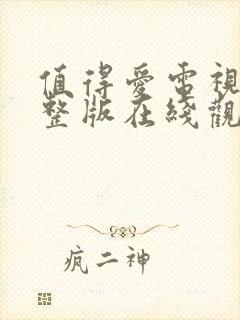 值得愛電視
整版在綫觀
疯二神